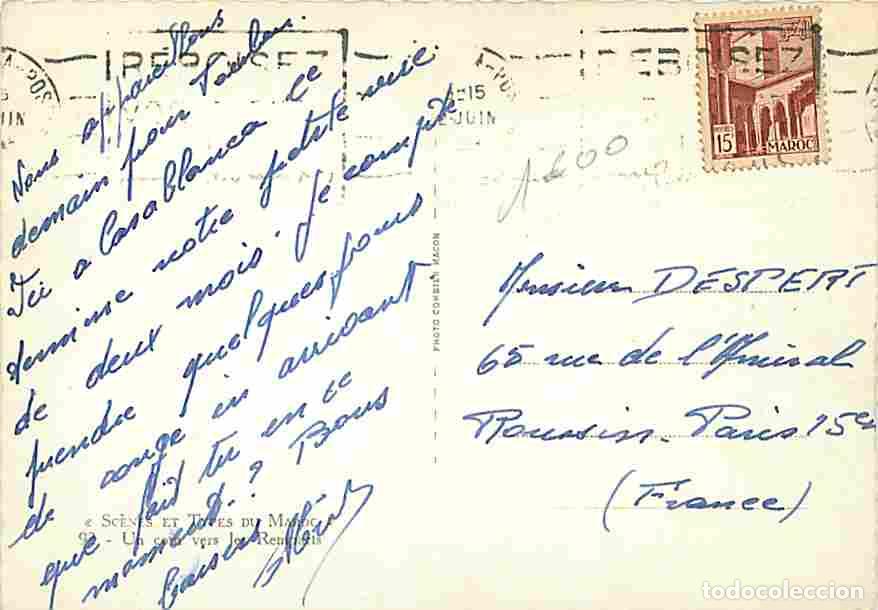 Nous appareillons
demain pour Toulon.
Ici a Casablanca ce
termine notre
de deux mois. Je compte
prendre quelques jours
de congé en arrivant
que fait tu en ce
moment..? Bons
baisers
« SCÈNES ET TYPES DU MAROC »
92 - Un coin vers les Remparts
PHOTO COMBIER MACON
REBOISEZ
REBOISEZ
15
JUIN
POSTES
15F
MAROC
1€00
Monsieur DESPERT
65 rue de l'Amiral
Roussin. Paris 15e
(France)
todocoleccion